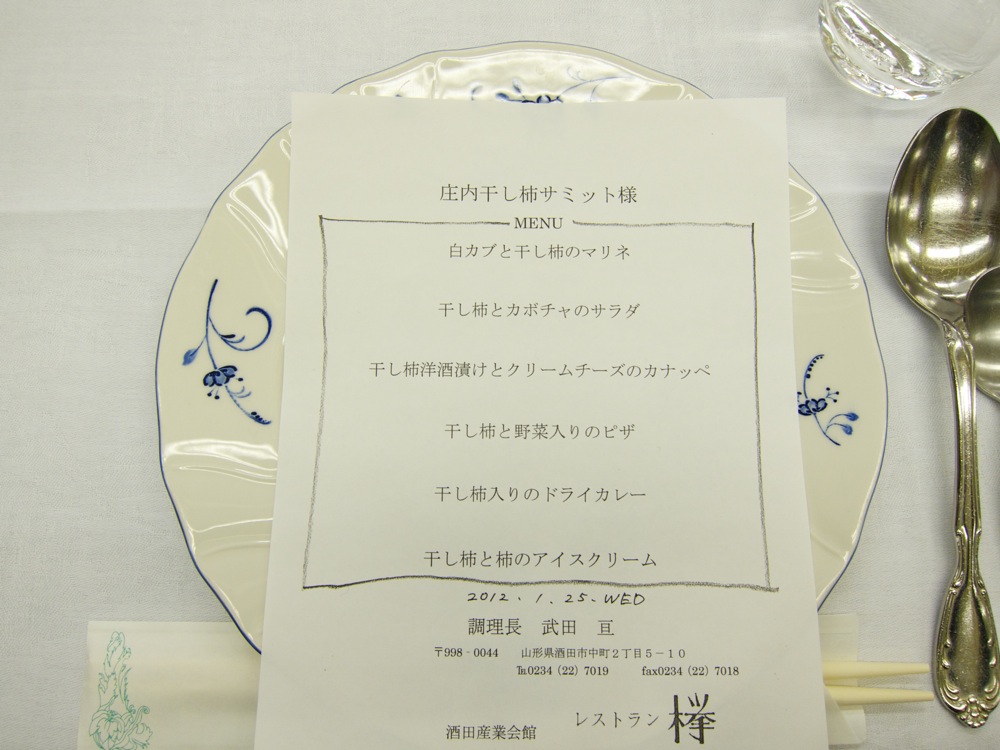 庄内干し柿サミット様
MENU
白カブと干し柿のマリネ
干し柿とカボチャのサラダ
干し柿洋酒漬けとクリームチーズのカナッペ
干し柿と野菜入りのピザ
干し柿入りのドライカレー
干し柿と柿のアイスクリーム
2012. 1. 25. WED
調理長 武田 亘
〒998‐0044 山形県酒田市中町2丁目5－10
℡0234（22）7019 fax0234（22）7018
レストラン 欅
酒田産業会館